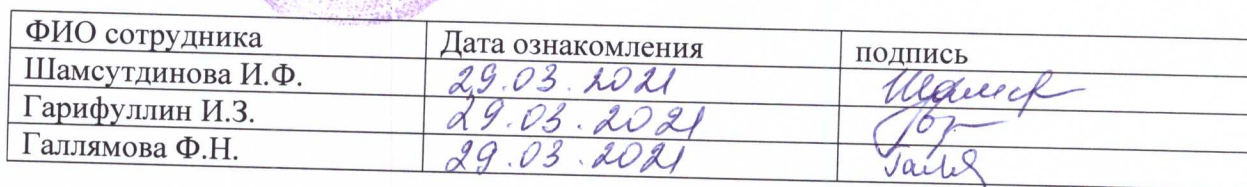 ФИО сотрудника Дата ознакомления подпись
Шамсутдинова И.Ф. 29.03.2021
Гарифуллин И.З. 29.03.2021
Галлямова Ф.Н. 29.03.2021